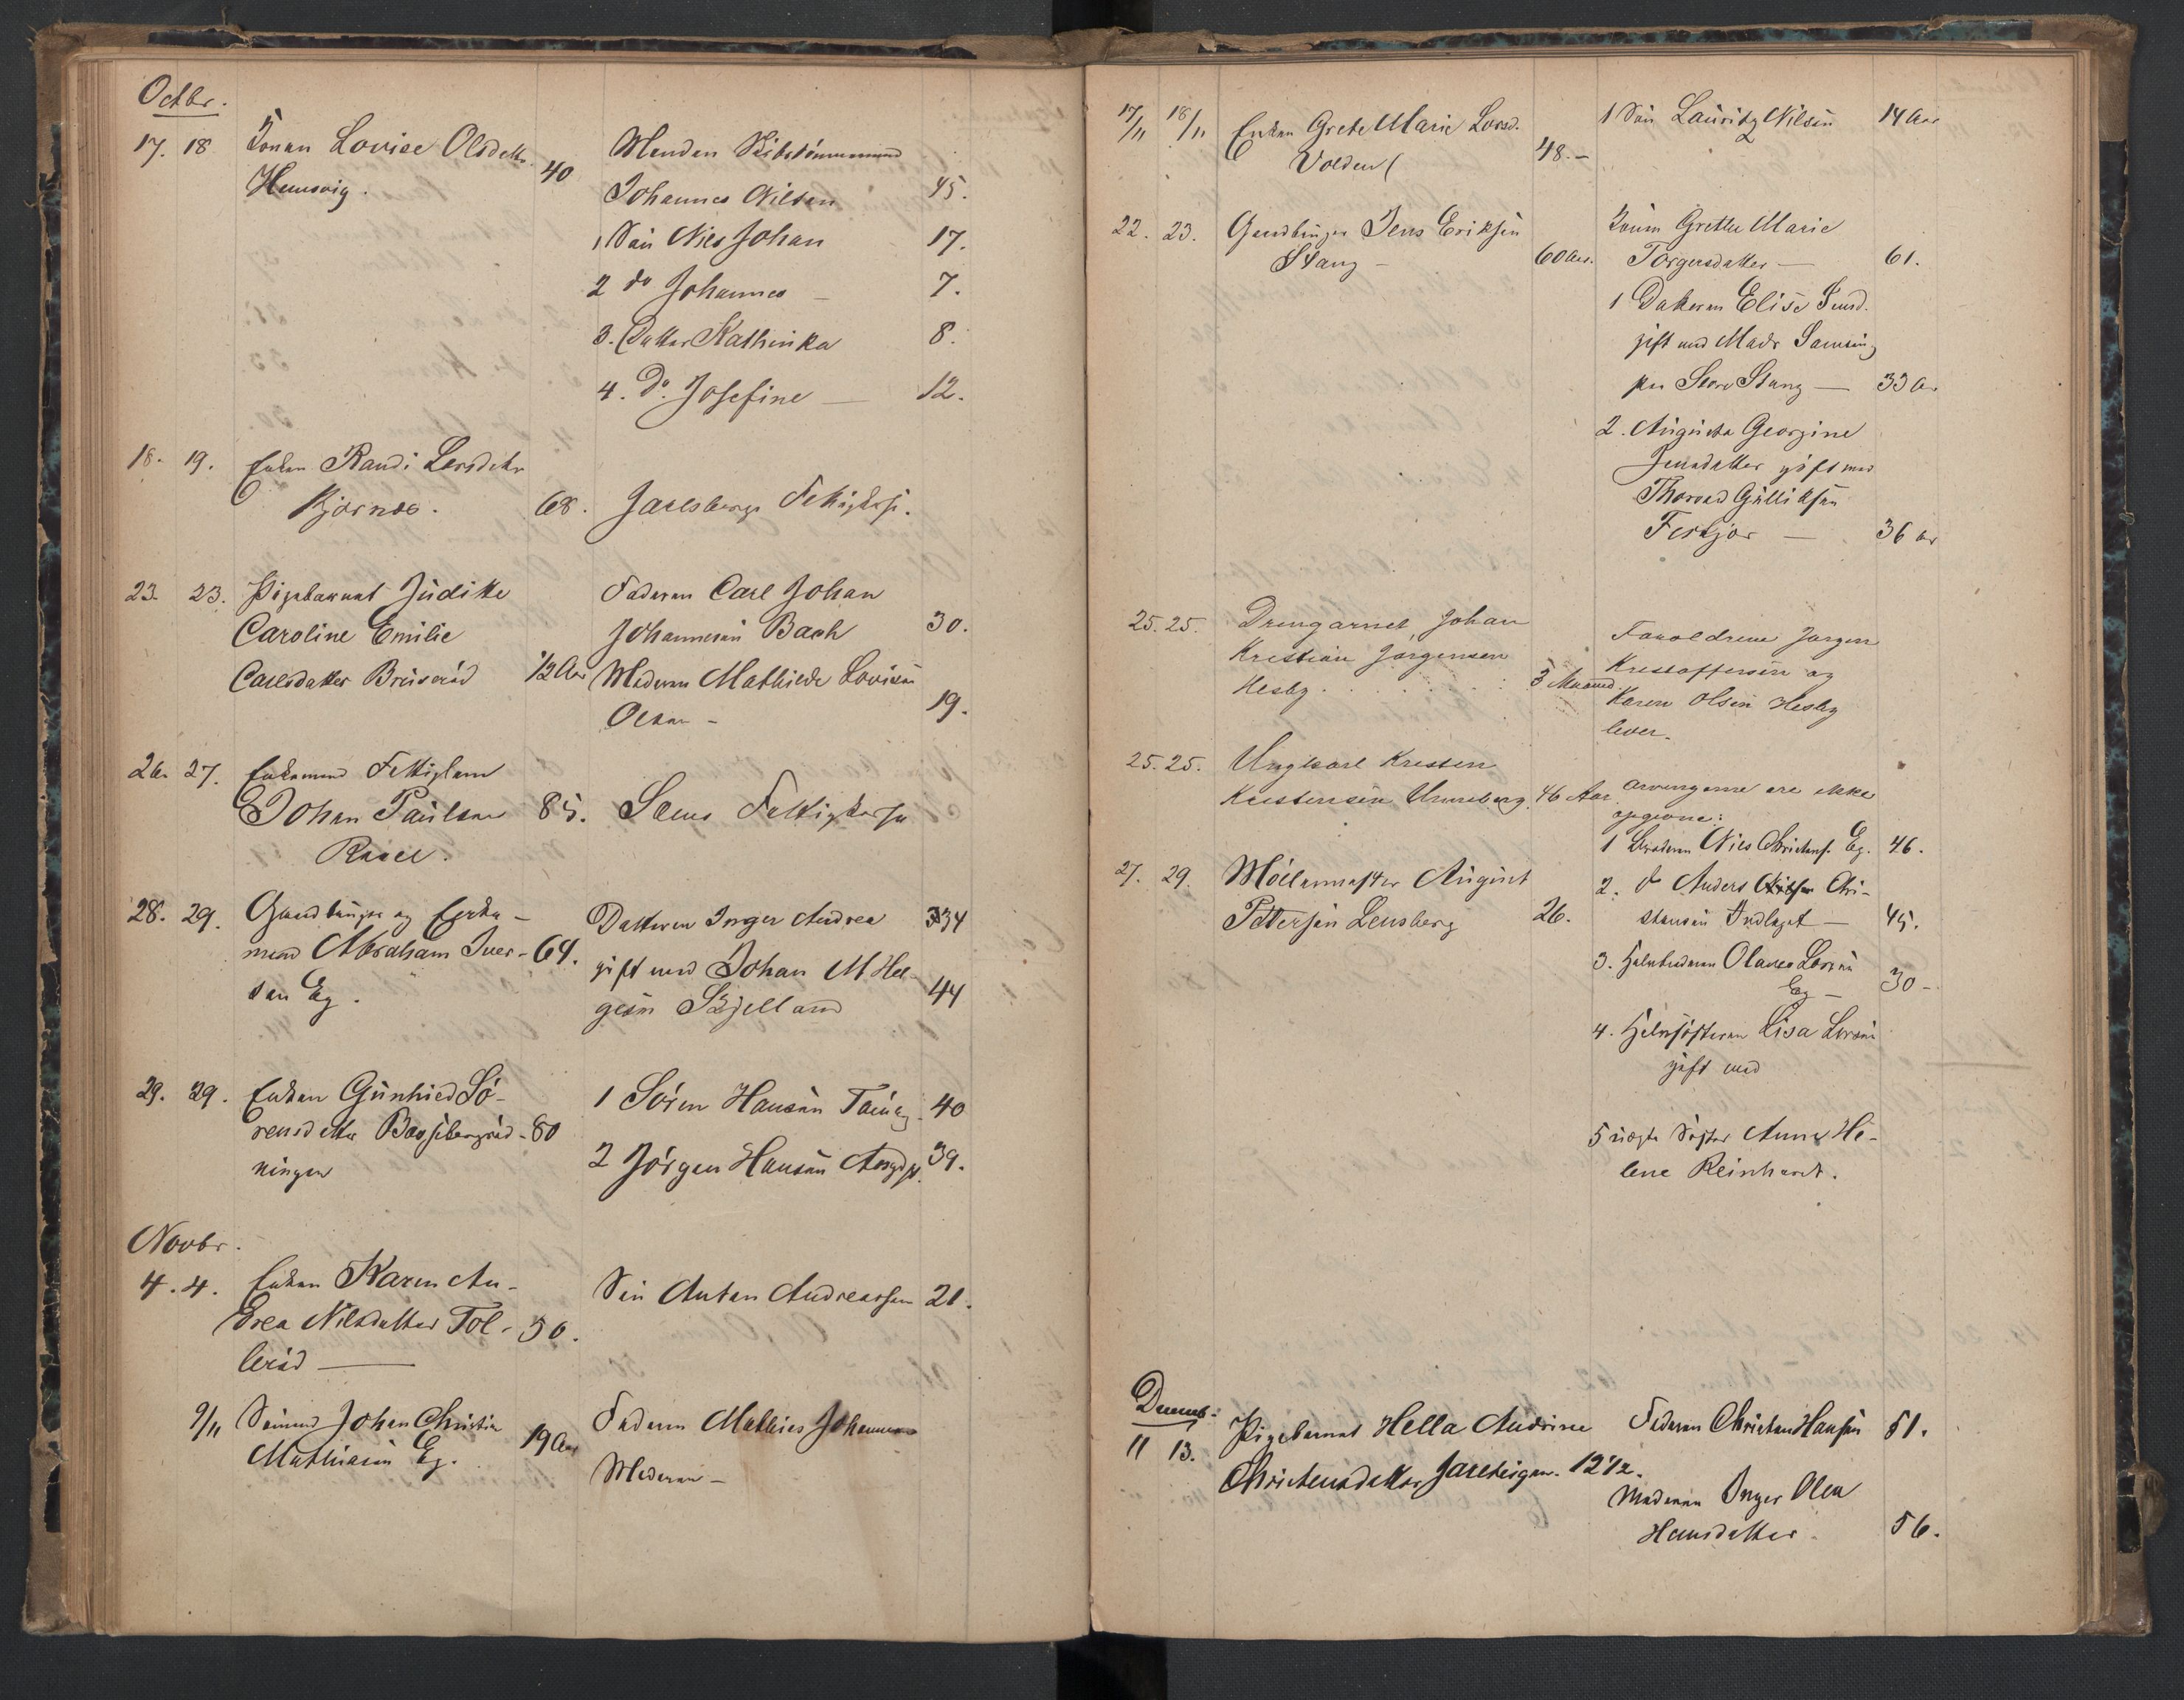 Octbr.
17. 18 Konen Lovise Olsdatter
Hemsvig. 40
Manden Skibstømmermand
Johannes Nilsen 45.
1 Søn Nils Johan 17.
2 do Johannes 7.
3. Datter Kathinka 8.
4. Do. Josefine 12.
18. 19. Enken Randi Larsdatter
Bjørnes. 68. Jarlsbergs Fattigkasse.
23. 23. Pigebarnet Judithe
Caroline Emilie
Carlsdatter Bruserød 1/2 Aar
Faderen Carl Johan
Johannesen Bach 30.
Moderen Mathilde Lovise
Olsen - 19.
26. 27. Enkemand Fattiglem
Johan Paulsen 85. Sems Fattigkasse
Raael.
28. 29. Gaardbruger og Enke-
mand Abraham Iver- 64.
sen Eg.
Datteren Inger Andrea 34
gift med Johan M Hel-
gesen Skjelland 44
29. 29. Enken Gunhild Sø-
rensdatter Basseberød- 80
ningen
1 Søren Hansen 40
2 Jørgen Hansen 39.
Novbr.
4. 4. Enken Karen An-
drea Nilsdatter Tol- 50.
lerød
Søn Anton Andreassen 21.
9/11 Sømand Johan Christian
Mathiasen Eg. 19 Aar
Faderen Mathias Johannes
Moderen -
17/11 18/11 Enken Grete Marie Larsd.
Volden 48.-
1 Søn Lauritz Nilsen 14 Aar
22. 23. Gaardbruger Jens Eriksen
Stang - 60 Aar.
Konen Grethe Marie
Torgersdatter 61.
1 Datteren Elise Jensd.
gift med Mads
paa Store Stang 33 Aar
2. Augusta Georgine
Jensdatter gift med
Thorvald Gulliksen
Ferkjør 36 Aar
25. 25. Drengebarnet Johan
Kristian Jørgensen
Hesby. 3 Maaned.
Foreldrene Jørgen
Kristoffersen og
Karen Olsen Hesby
lever.
25. 25. Ungkarl Kristen
Kristensen Unneberg. 46 Aar
Arvingerne ere ikke
opgivne:
27. 29. Møllemester August
Petersen Lensberg 26.
1 Broderen Nils Christens. Eg. 46.
2. do Anders Nilsen Chri-
stensen Indlaget 45.
3. Halvbroderen Olaves Larsen
Eg - 30 -
4. Halvsøsteren Lisa Larsen
gift med
5 ægte Søster Anne He-
lene Reinhardt.
Decemb:
11 13. Pigebarnet Hella Andrine
Christensdatter 12 1/2.
Faderen Christen Hansen 51.
Moderen Inger Olea
Hansdatter 56.